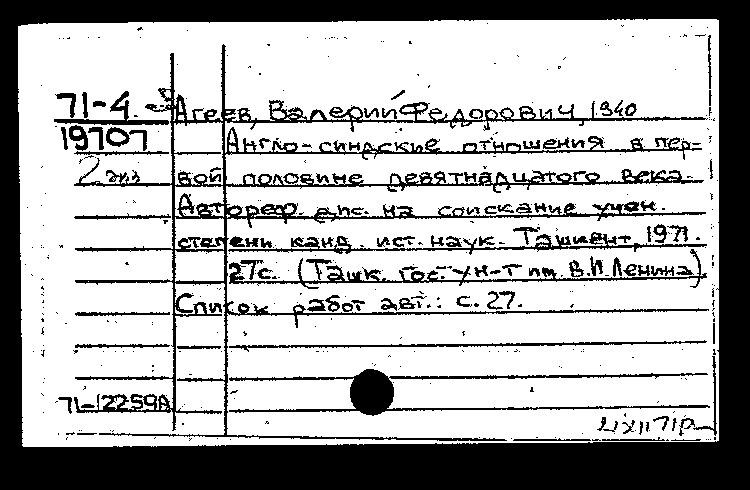 71-4 Агеев, Валерий Федорович, 1940
19707 Англо-синдские отношения в пер-
2 экз вой половине девятнадцатого века.
Автореф. дис. на соискание учен.
степени канд. ист. наук. Ташкент, 1971.
27с. (Ташк. гос. ун-т им. В.И.Ленина).
Список работ авт.: с. 27.
71-12259А